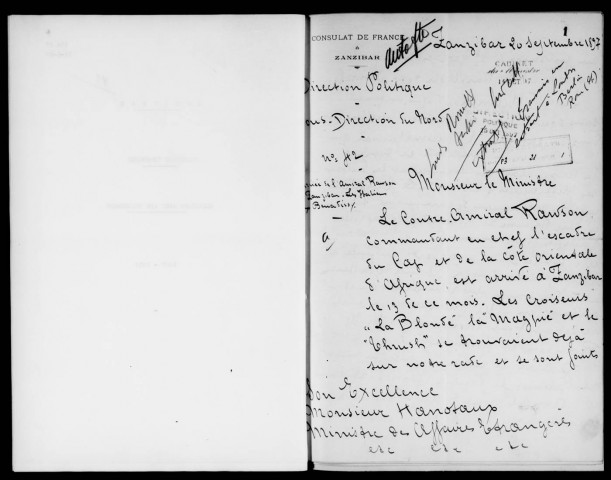 1
CONSULAT DE FRANCE
à
ZANZIBAR
Zanzibar 20 Septembre 1897
CABINET
Direction Politique
Sous-Direction du Nord
POLITIQUE
No 42
Arrivée de l'Amiral Rawson
à Zanzibar. Les Italiens
au Bénadir
Monsieur le Ministre
Le Contre-Amiral Rawson,
commandant en chef l'escadre
du Cap et de la côte orientale
d'Afrique, est arrivé à Zanzibar
le 13 de ce mois. Les Croiseurs
"La Blonde" la "Magpie" et le
"Thrush" se trouvaient déjà
sur notre rade et se sont joints
Son Excellence
Monsieur Hanotaux
Ministre des Affaires Etrangères
etc etc etc